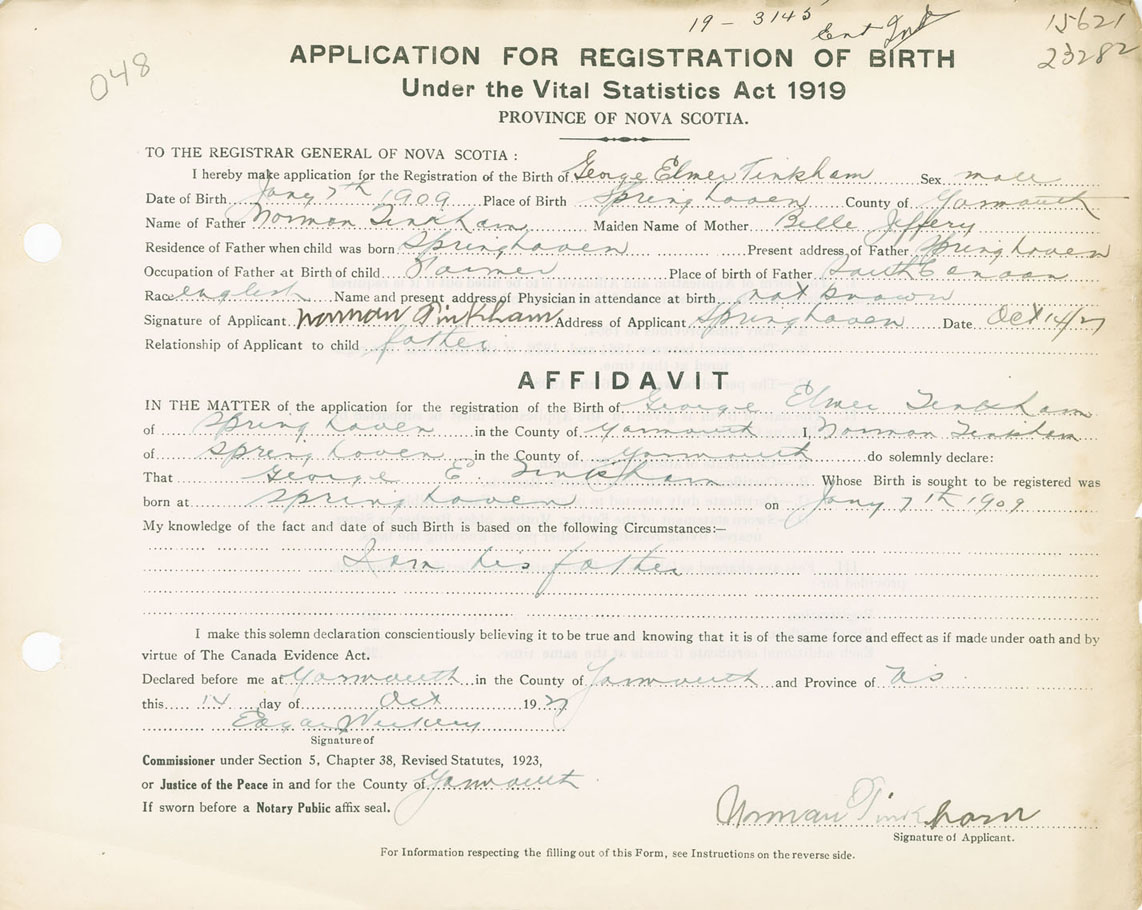 19 - 3145
15621
048
23282
APPLICATION FOR REGISTRATION OF BIRTH
Under the Vital Statistics Act 1919
PROVINCE OF NOVA SCOTIA.
TO THE REGISTRAR GENERAL OF NOVA SCOTIA :
I hereby make application for the Registration of the Birth of George Elmer Tinkham Sex male
Date of Birth Jany 7th 1909 Place of Birth Springhaven County of Yarmouth
Name of Father Norman Tinkham Maiden Name of Mother Belle Jeffery
Residence of Father when child was born Springhaven Present address of Father Springhaven
Occupation of Father at Birth of child Farmer Place of birth of Father South Canaan
Race english Name and present address of Physician in attendance at birth not known
Signature of Applicant Norman Tinkham Address of Applicant Springhaven Date Oct 14/27
Relationship of Applicant to child father
AFFIDAVIT
IN THE MATTER of the application for the registration of the Birth of George Elmer Tinkham
of Springhaven in the County of Yarmouth I, Norman Tinkham
of Springhaven in the County of Yarmouth do solemnly declare:
That George E. Tinkham Whose Birth is sought to be registered was
born at Springhaven on Jany 7th 1909
My knowledge of the fact and date of such Birth is based on the following Circumstances:—
I am his father
I make this solemn declaration conscientiously believing it to be true and knowing that it is of the same force and effect as if made under oath and by
virtue of The Canada Evidence Act.
Declared before me at Yarmouth in the County of Yarmouth and Province of NS
this 14 day of Oct 1927
Edgar
Signature of
Commissioner under Section 5, Chapter 38, Revised Statutes, 1923,
or Justice of the Peace in and for the County of Yarmouth
If sworn before a Notary Public affix seal.
Norman Tinkham
Signature of Applicant.
For Information respecting the filling out of this Form, see Instructions on the reverse side.